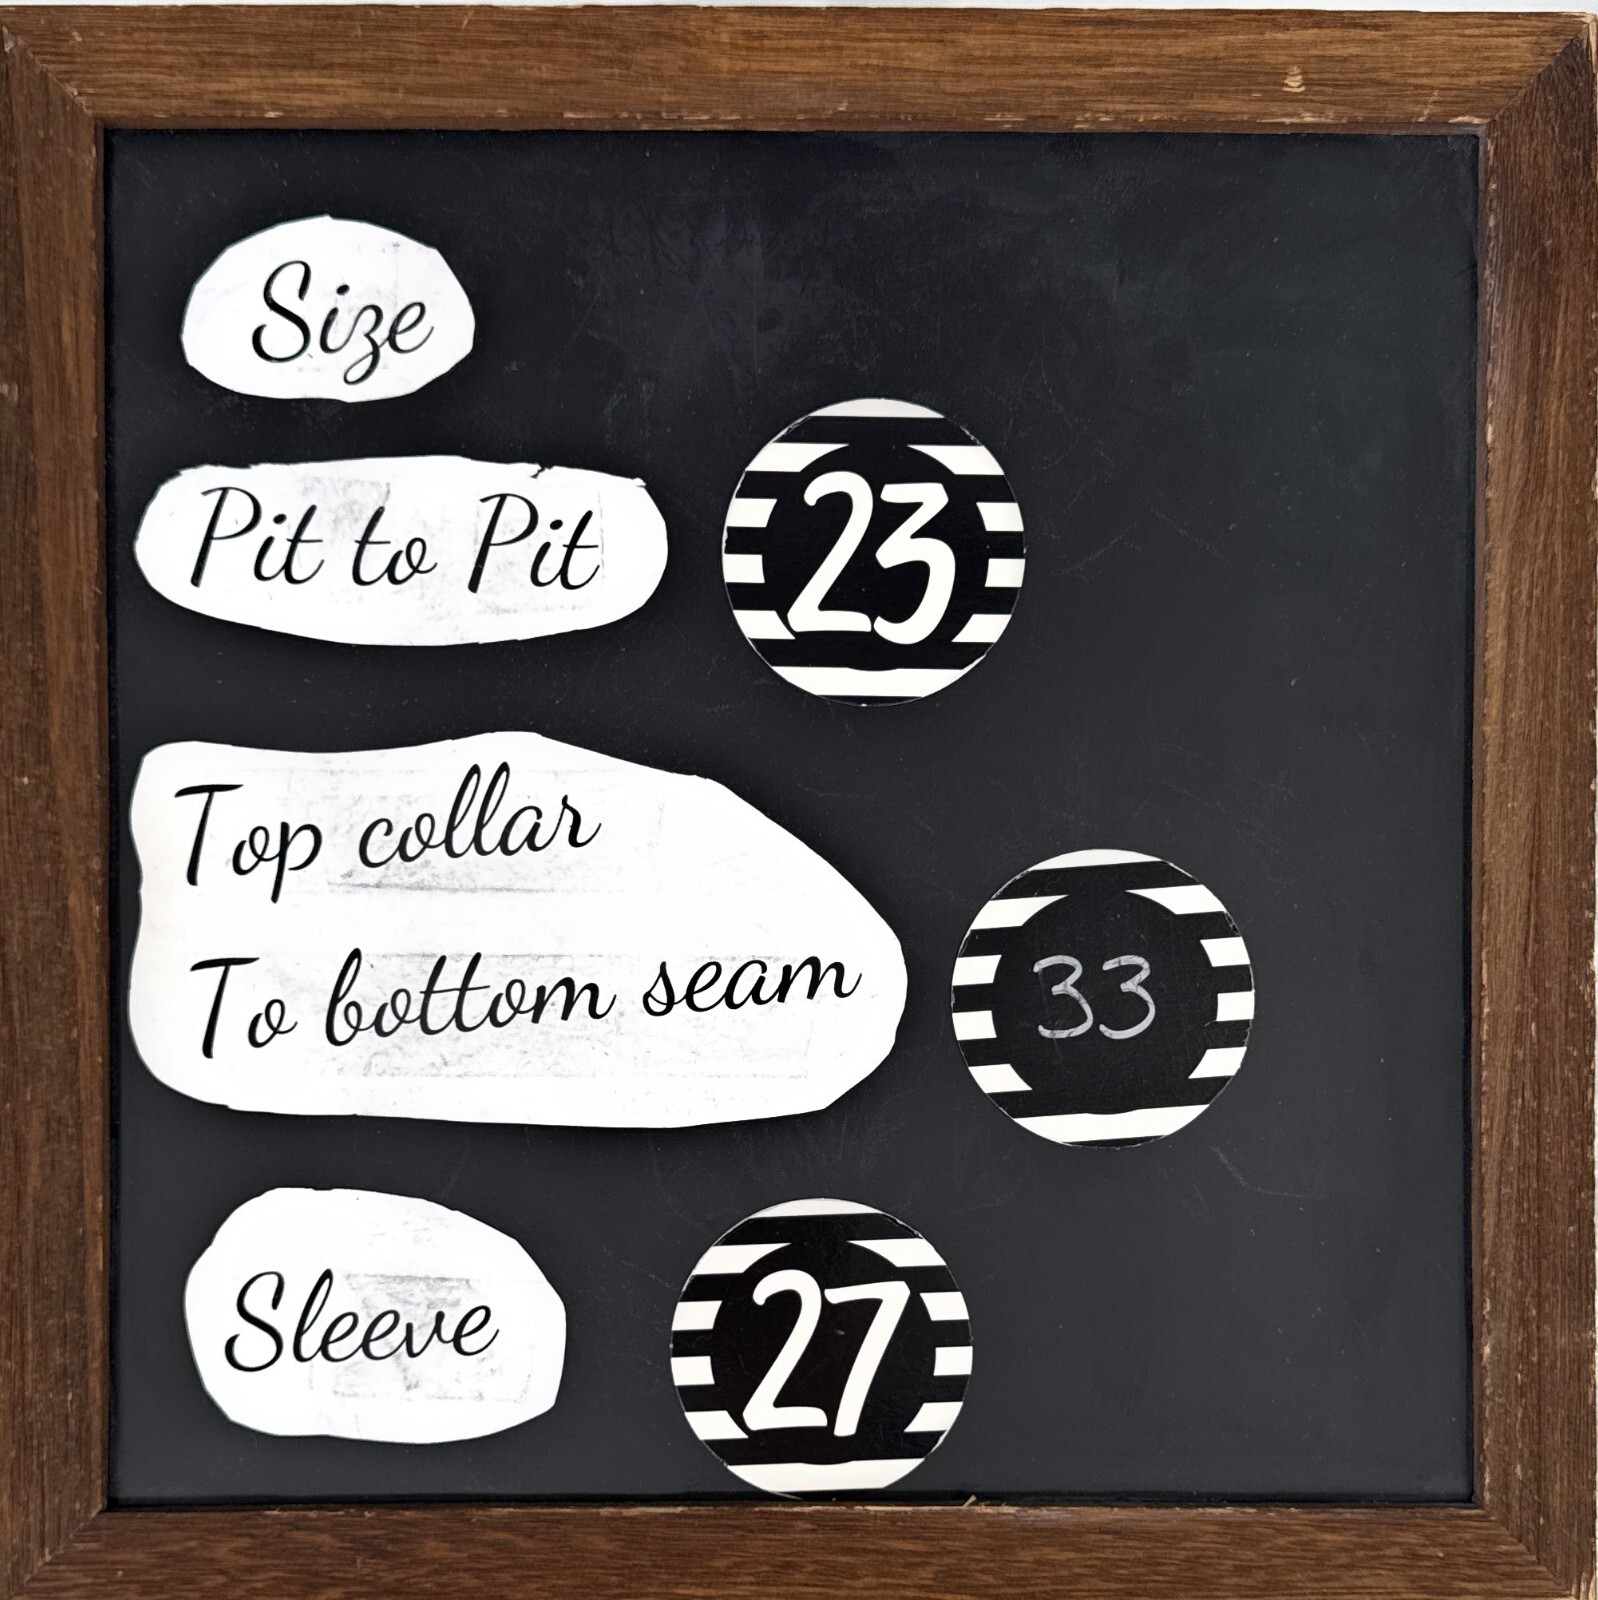 Size
Pit to Pit 23
Top collar
To bottom seam 33
Sleeve 27